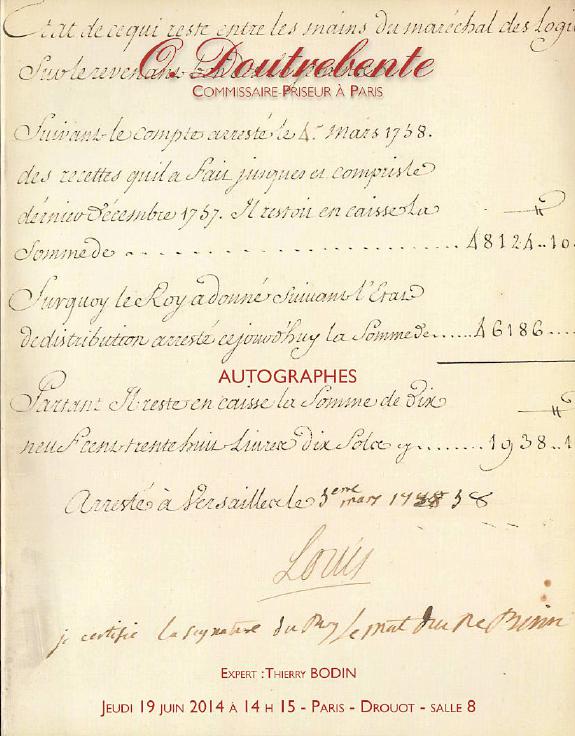 Etat de ce qui reste entre les mains du maréchal des Logi
Sur le revenans
O. Doutrebente
Commissaire-Priseur à Paris
Suivant le compte arresté le 4.e mars 1758.
des recettes qu'il a fait jusques et compris le
dernier Décembre 1757. Il restoit en caisse La
Somme de ........................ 48124..10
Surquoy le Roy a donné Suivant l'Etat
de distribution arresté cejourd'huy la Somme de......46186....
AUTOGRAPHES
Partant Il reste en caisse la Somme de Dix
neuf Cens trente huit Livres dix Sols cy........1938..1
Arresté à Versailles le 5eme mars 1758 58
Louis
je certifie la signature du Roy le
Expert : Thierry BODIN
Jeudi 19 juin 2014 à 14 h 15 - Paris - Drouot - salle 8